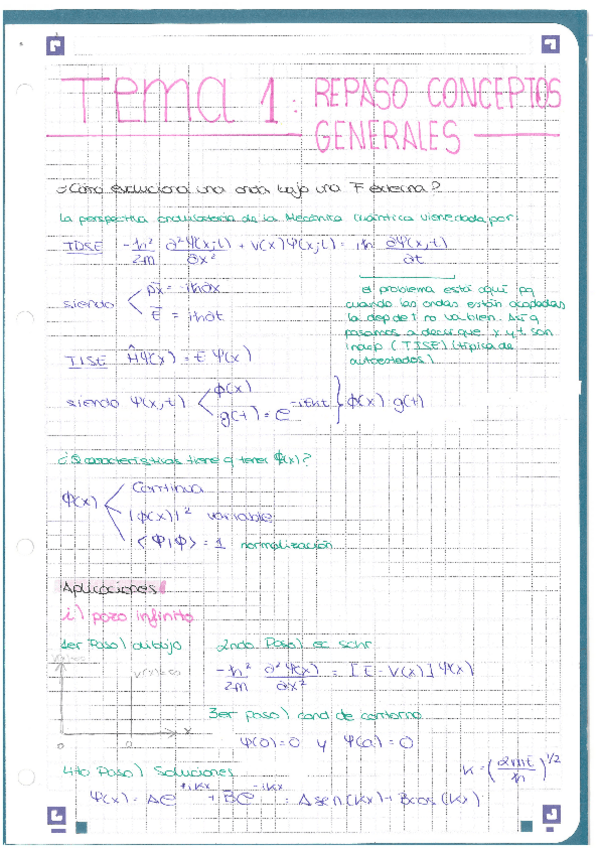 Tema 1: REPASO CONCEPTOS GENERALES
¿Cómo evoluciona una onda bajo una F externa?
La perspectiva ondulatoria de la Mecánica Cuántica viene dada por:
TDSE -ħ²/2m ∂²Ψ(x,t)/∂x² + V(x)Ψ(x,t) = iħ ∂Ψ(x,t)/∂t
siendo p̂x = -iħ∂x
Ê = iħ∂t
el problema está aquí pq
cuando las ondas están acopladas
la dep de t no va bien. Así q
pasamos a decir que x y t son
indep (TISE) (típica de
autoestados)
TISE ĤΨ(x) = E Ψ(x)
siendo Ψ(x,t) ϕ(x)
g(t) = e } ϕ(x) g(t)
¿Q características tiene q tener ϕ(x)?
ϕ(x) Continua
|ϕ(x)|² variable
⟨φ|φ⟩ = 1 normalización
Aplicaciones
i) pozo infinito
1er Paso) dibujo 2ndo Paso) ec schr
V(x)
x
0
-ħ²/2m ∂²Ψ(x)/∂x² = [E - V(x)] Ψ(x)
3er paso) cond de contorno
Ψ(0)=0 y Ψ(a)=0
4to Paso) Soluciones K = (2mE/ħ)^1/2
Ψ(x) = Ae^iKx + Be^-iKx = A sen(Kx) + B cos(Kx)